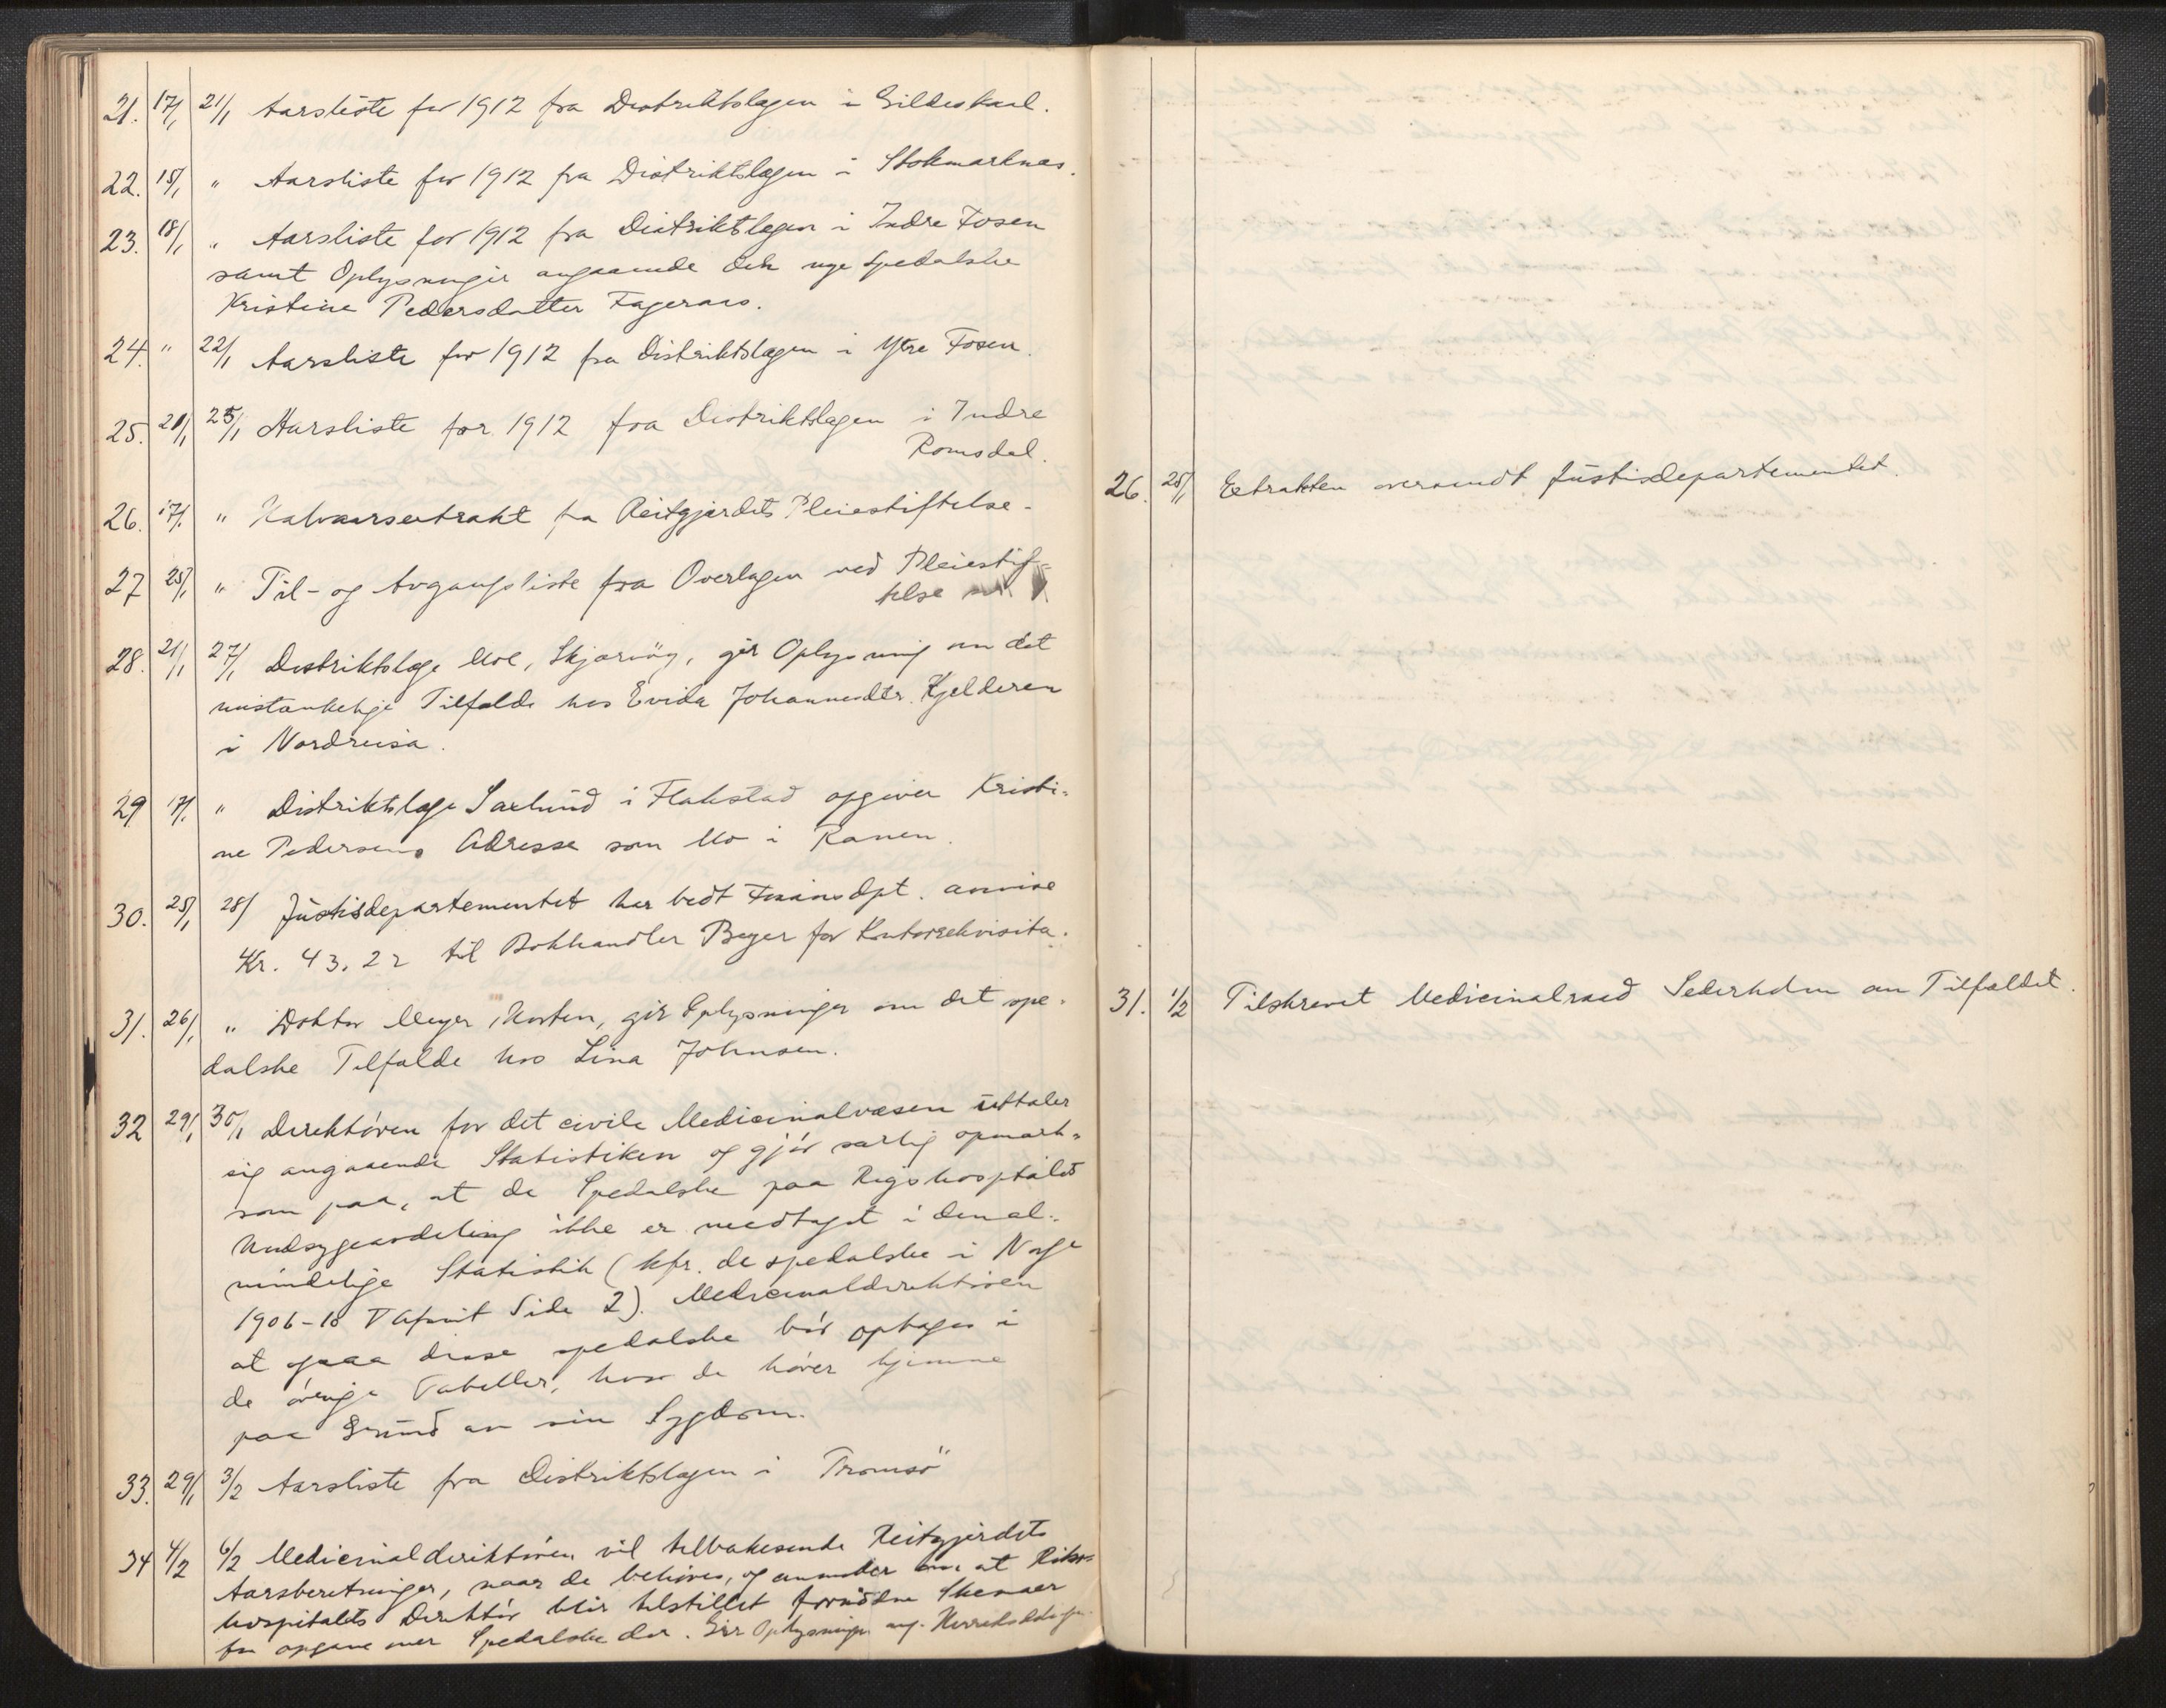 21. 17/1 21/1 Aarsliste for 1912 fra Distriktslægen i Gildeskaal.
22. 15/1 " Aarsliste for 1912 fra Distriktslægen i Stokmarknæs.
23. 18/1 " Aarsliste for 1912 fra Distriktslægen i Indre Fosen
samt Oplysninger angaaende den nye spedalske
Kristine Pedersdatter Fageraas.
24. " 22/1 Aarsliste for 1912 fra Distriktslægen i Ytre Fosen.
25. 21/1 25/1 Aarsliste for 1912 fra Distriktslægen i Indre
Romsdal.
26. 17/1 " Halvaarsextrakt fra Reitgjærdets Pleiestiftelse.
27 25/1 " Til- og Avgangsliste fra Overlægen ved Pleiestif-
telse
28. 21/1 27/1 Distriktslæge Moe, Skjærvöy, gir Oplysning om det
mistænkelige Tilfælde hos Evida Johannesdtr. Kjelderen
i Nordreisa.
29 17/1 " Distriktslæge Saxlund i Flakstad opgiver Kristi-
ne Pedersens Adresse som Mo i Ranen.
30. 25/1 28/1 Justisdepartementet har bedt Finansdpt. anvise
Kr. 43.22 til Bokhandler Beyer for Kontorrekvisita.
31. 26/1 " Doktor Meyer, Horten, gir Oplysninger om det spe-
dalske Tilfælde hos Lina Johnsen.
32 29/1 30/1 Direktören for det civile Medicinalvæsen uttaler
sig angaaende Statistiken og gjör særlig opmærk-
som paa, at de Spedalske paa Rigshospitalets
Hudsygeavdeling ikke er medtaget i den al-
mindelige Statistik (kfr. de spedalske i Norge
1906-10 Side 2). Medicinaldirektören
at disse spedalske bör optages i
de övrige Tabeller, hvor de hörer hjemme
paa Grund av sin Sygdom.
33. 29/1 3/2 Aarsliste fra Distriktslægen i Tromsö
34 4/2 6/2 Medicinaldirektören vil tilbakesende Reitgjærdets
Aarsberetninger, naar de behöves, og anmoder om at Riks-
hospitalets Direktör blir tilstillet fornödne Skemaer
for opgave over Spedalske der. Gir Oplysninger ang.
26. 25/1 Extrakten oversendt Justisdepartementet.
31. 1/2 Tilskrevet Medicinalraad Sederholm om Tilfældet.